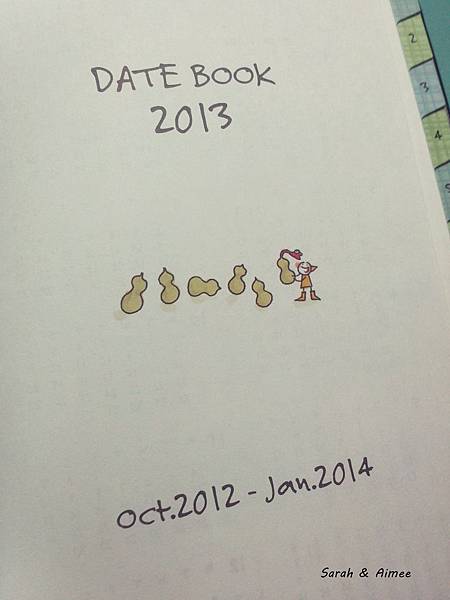 DATE BOOK
2013
2
3
4
oct.2012 - Jan.2014
Sarah & Aimee